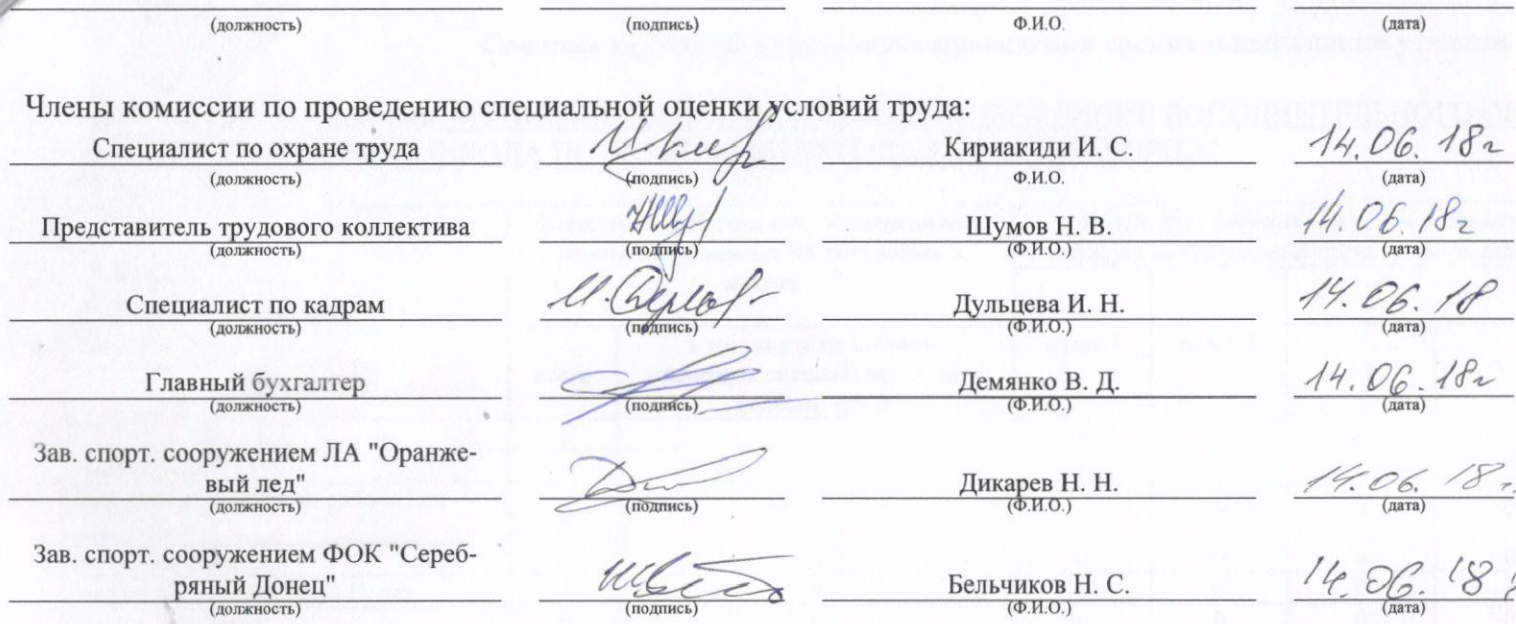 (должность) (подпись) Ф.И.О. (дата)
Члены комиссии по проведению специальной оценки условий труда:
Специалист по охране труда Кириакиди И. С. 14.06.18г
(должность) (подпись) Ф.И.О. (дата)
Представитель трудового коллектива Шумов Н. В. 14.06.18г
(должность) (подпись) Ф.И.О. (дата)
Специалист по кадрам Дульцева И. Н. 14.06.18
(должность) (подпись) (Ф.И.О.) (дата)
Главный бухгалтер Демянко В. Д. 14.06.18г
(должность) (подпись) (Ф.И.О.) (дата)
Зав. спорт. сооружением ЛА "Оранже-
вый лед" Дикарев Н. Н. 14.06.18г.
(должность) (подпись) (Ф.И.О.) (дата)
Зав. спорт. сооружением ФОК "Сереб-
ряный Донец" Бельчиков Н. С. 14.06.18г
(должность) (подпись) (Ф.И.О.) (дата)